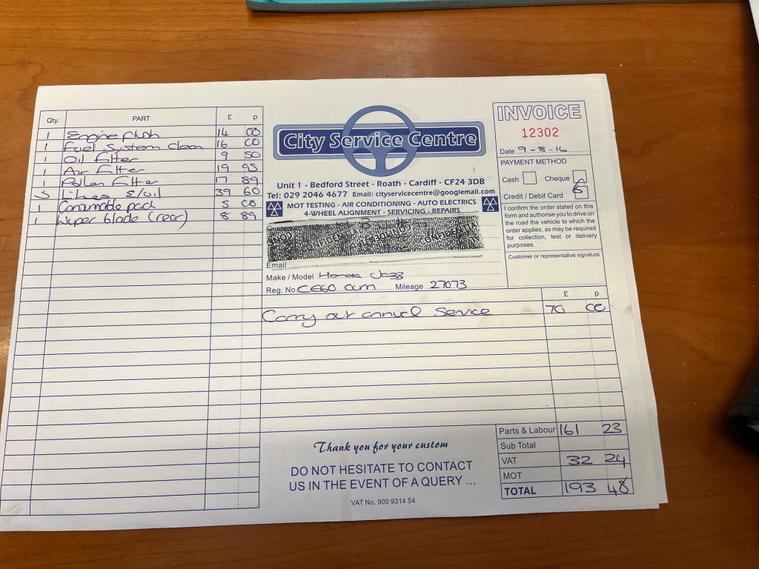 Qty. PART £ p
1 Engine flush 14 00
1 Fuel System Clean 16 00
1 Oil Filter 9 50
1 Air Filter 19 95
1 Pollen Filter 17 89
5 Litres E/oil 39 60
1 Consumable pack 5 00
1 Wiper blade (rear) 8 89
City Service Centre
Unit 1 - Bedford Street - Roath - Cardiff - CF24 3DB
Tel: 029 2046 4677 Email: cityservicecentre@googlemail.com
MOT TESTING - AIR CONDITIONING - AUTO ELECTRICS
4-WHEEL ALIGNMENT - SERVICING - REPAIRS
Email
Make / Model Honda Jazz
Reg. No CE60 Mileage 27073
INVOICE
12302
Date 9-8-16
PAYMENT METHOD
Cash Cheque
Credit / Debit Card
I confirm the order stated on this
form and authorise you to drive on
the road the vehicle to which the
order applies, as may be required
for collection, test or delivery
purposes.
Customer or representative signature
£ p
Carry out annual Service 70 00
Thank you for your custom
DO NOT HESITATE TO CONTACT
US IN THE EVENT OF A QUERY ...
VAT No. 900 9314 54
Parts & Labour 161 23
Sub Total
VAT 32 24
MOT
TOTAL 193 48